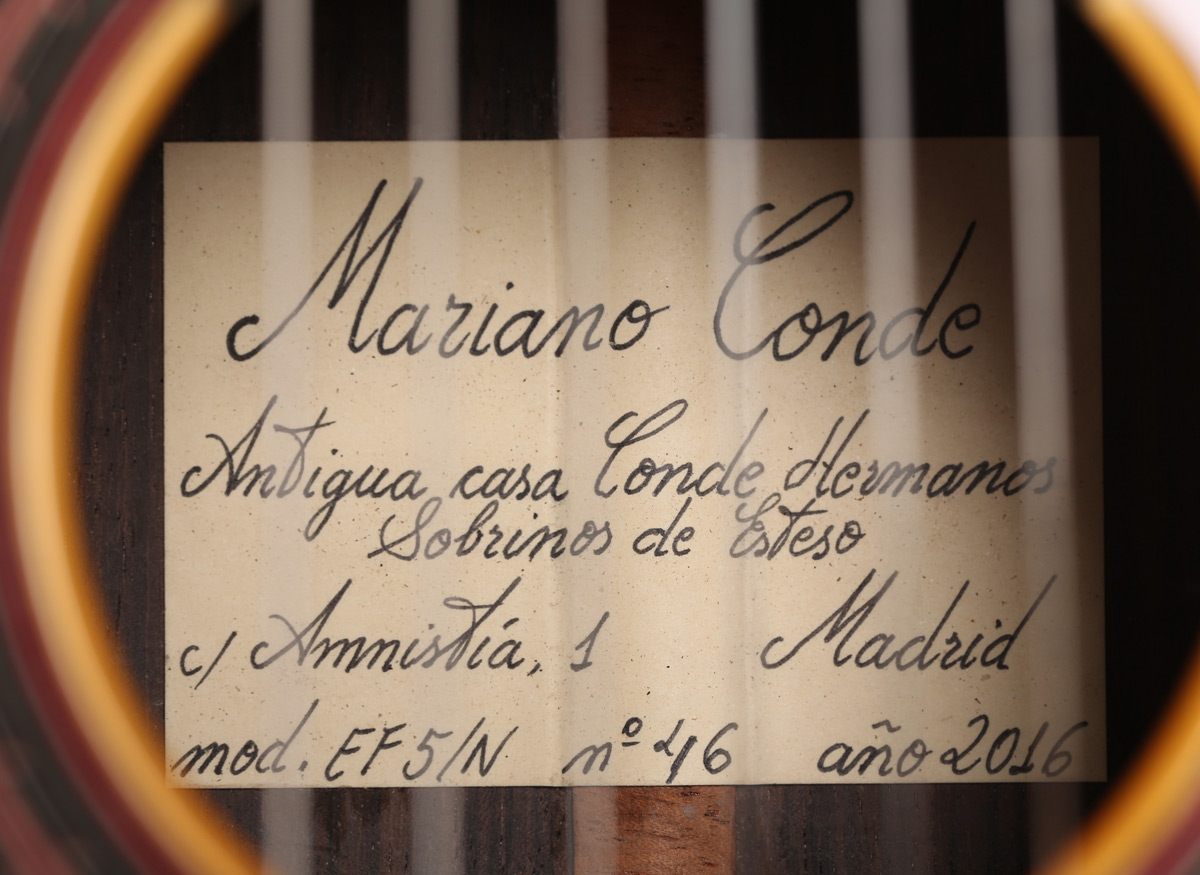 Mariano Conde
Antigua casa Conde Hermanos
Sobrinos de Esteso
c/ Amnistía, 1 Madrid
mod. EF5/N nº 46 año 2016